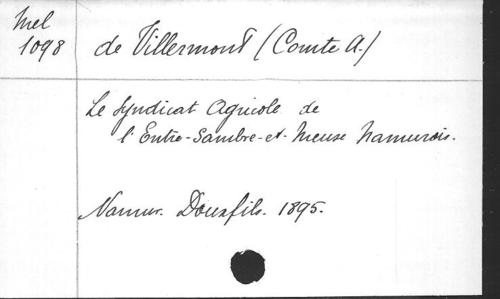 Mel
1098
de Villermont (Comte A.)
Le Syndicat Agricole de
l'Entre-Sambre-et-Meuse Namurois.
Namur. Douxfils. 1895.